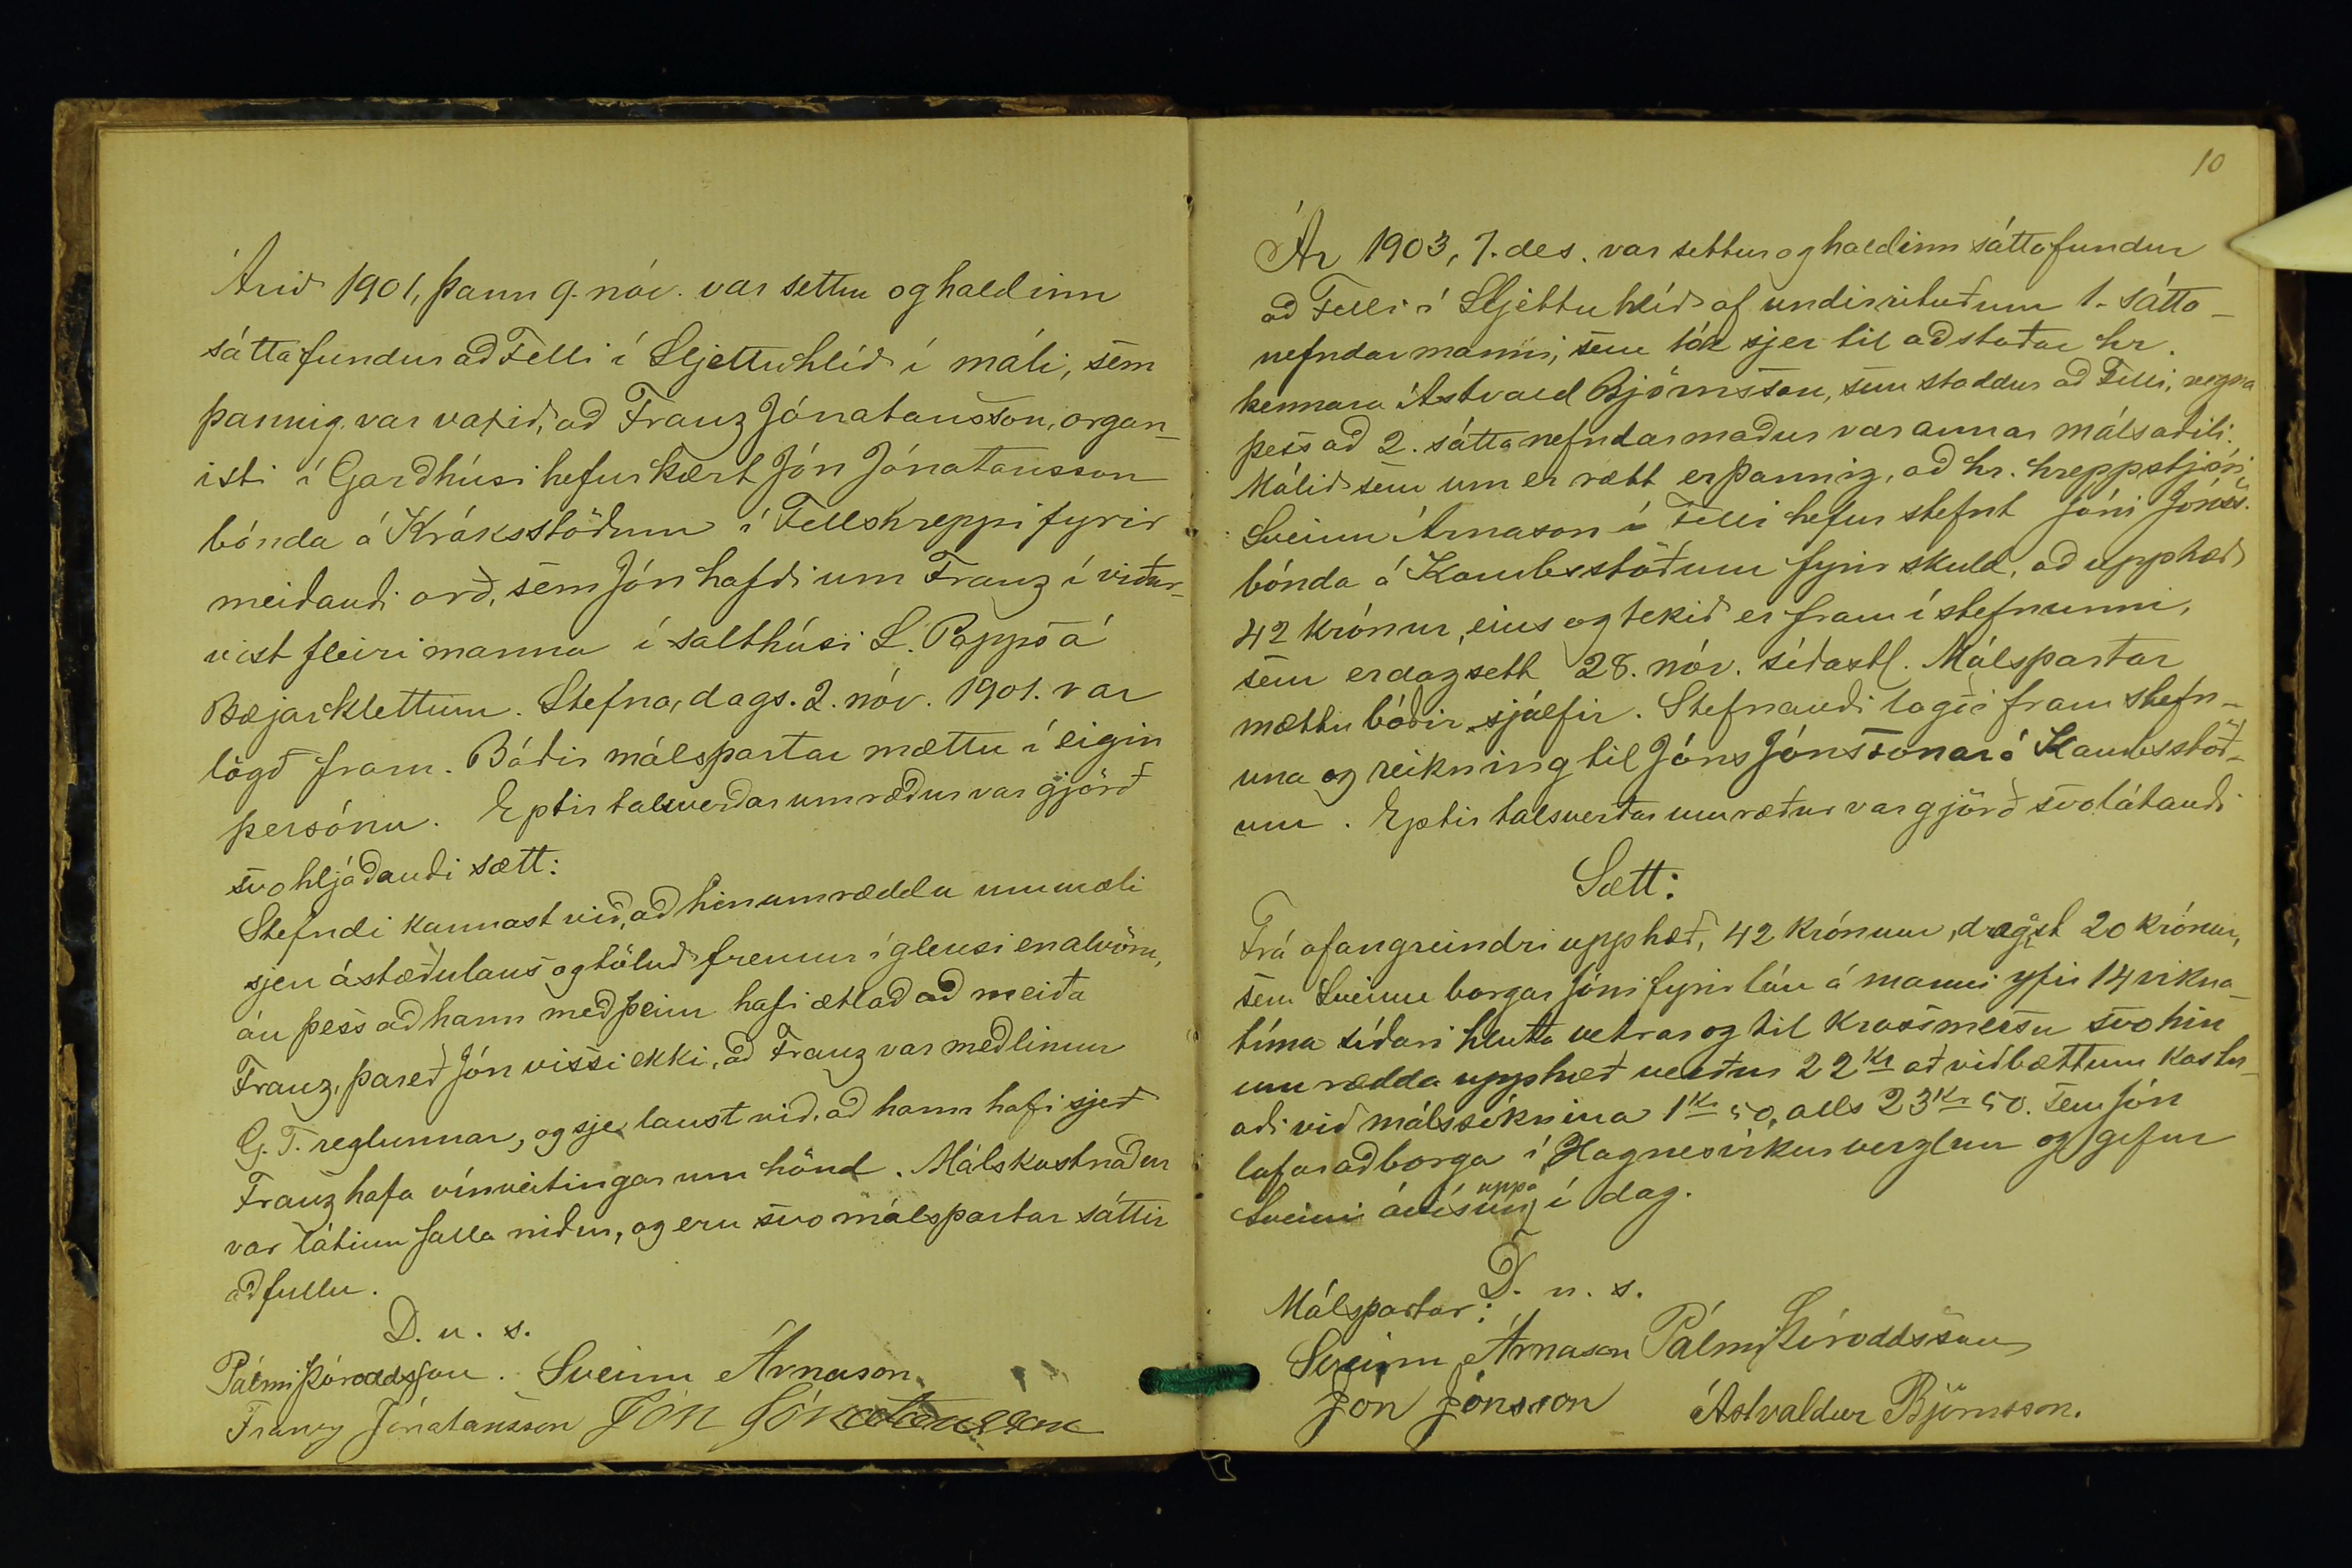 Árið 1901, þann 9. nóv. var settur og haldinn
sáttafundur að Felli í Sljettuhlíð í máli, sem
þannig var varið, að Franz Jónatansson, organ-
isti í Garðhúsi hefur kært Jón Jónatansson
bónda á Króksstöðum í Fellshreppi fyrir
meiðandi orð, sem Jón hafði um Franz í viður-
vist fleiri manna í salthúsi L. Popps á
Bæjarklettum. Stefna, dags. 2. nóv. 1901. var
lögð fram. Báðir málspartar mættu í eigin
persónu. Eptir talsverðar umræður var gjörð
svohljóðandi sætt:
Stefndi kannast við, að hin umræddu ummæli
sjeu ástæðulaus og töluð fremur í glensi en alvöru,
án þess að hann með þeim hafi ætlað að meiða
Franz, þareð Jón vissi ekki, að Franz var meðlimur
G. T. reglunnar, og sje laust við, að hann hafi sjeð
Franz hafa vínveitingar um hönd. Málskostnaður
var látinn falla niður, og eru svo málspartar sáttir
að fullu.
D. u. s.
Pálmi Þóroddsson. Sveinn Árnason
Franz Jónatansson Jón Jónatansson
10
Ár 1903, 7. des. var settur og haldinn sáttafundur
að Felli í Sljettuhlíð af undirrituðum 1. sátta-
nefndarmanni, sem tók sjer til aðstoðar hr.
kennara Ástvald Björnsson, sem staddur að Felli, vegna
þess að 2. sáttanefndarmaður var annar málsaðili.
Málið sem um er rætt er þannig, að hr. hreppstjóri
Sveinn Árnason í Felli hefur stefnt Jóni Jónss.
bónda á Kambsstöðum fyrir skuld, að upphæð
42 krónur, eins og tekið er fram í stefnunni,
sem er dagsett 28. nóv. síðastl. Málspartar
mættu báðir sjálfir. Stefnandi lagði fram stefn-
una og reikning til Jóns Jónssonar á Kambsstöð-
um. Eptir talsverðar umræður var gjörð svolátandi
Sætt:
Frá ofangreindri upphæð, 42 krónum, dragist 20 krónur,
sem Sveinn borgar Jóni fyrir lán á manni yfir 14 vikna-
tíma síðari hluta vetrar og til krossmessu svo hin
umrædda upphæð verður 22 kr að viðbættum kostn-
aði við málssóknina 1 kr 50, alls 23 kr 50. sem Jón
lofar að borga í Haganesvíkurverzlun og gefur
Sveini ávísun uppá í dag.
D. u. s.
Málspartar:
Sveinn Árnason Pálmi Þóroddsson
Jón Jónsson Ástvaldur Björnsson.